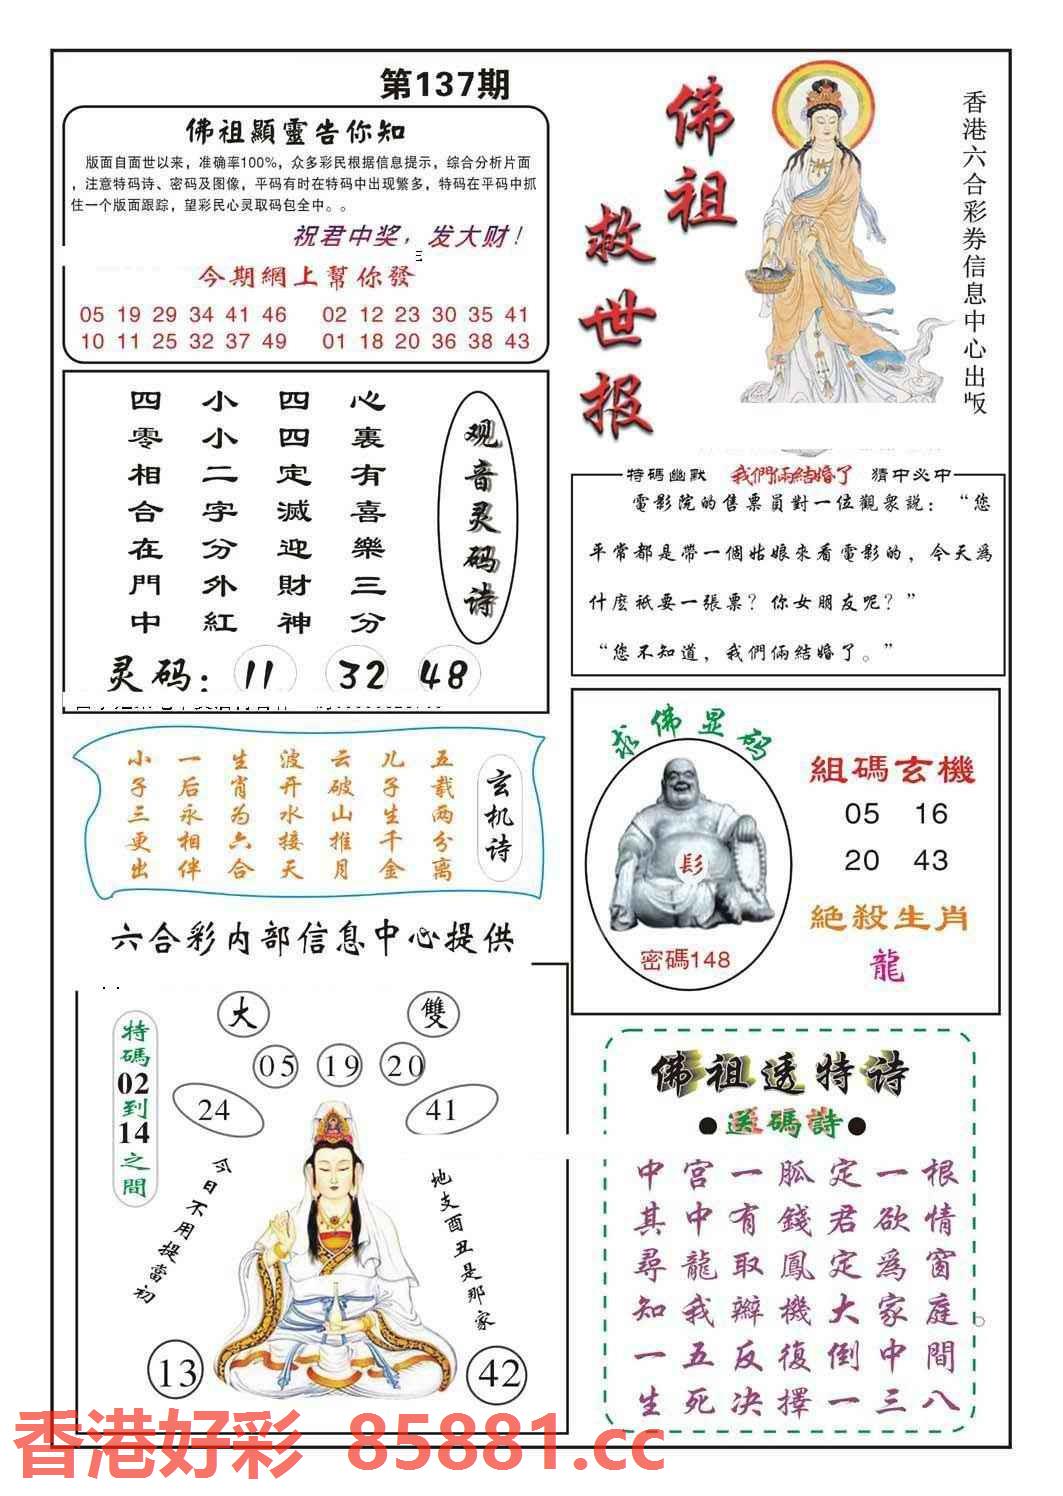 第137期
佛祖顯靈告你知
版面自面世以来，准确率100%，众多彩民根据信息提示，综合分析片面
，注意特码诗、密码及图像，平码有时在特码中出现繁多，特码在平码中抓
住一个版面跟踪，望彩民心灵取码包全中。。
祝君中奖，发大财！
今期網上幫你發
05 19 29 34 41 46 02 12 23 30 35 41
10 11 25 32 37 49 01 18 20 36 38 43
佛祖
救世报
香港六合彩券信息中心出版
观音灵码诗
心裏有喜樂三分
四四定滅迎財神
小小二字分外紅
四零相合在門中
灵码： 11 32 48
特碼幽默 我們倆結婚了 猜中必中
電影院的售票員對一位觀衆説：“您
平常都是帶一個姑娘來看電影的，今天爲
什麽祇要一張票？你女朋友呢？”
“您不知道，我們倆結婚了。”
玄机诗
五载两分离
儿子生千金
云破山推月
波开水接天
生肖为六合
一后永相伴
小子三更出
六合彩内部信息中心提供
求佛显码
密碼148
組碼玄機
05 16
20 43
絕殺生肖
龍
特碼02到14之間
大 雙
05 19 20
24 41
今日不用提當初
地支酉丑是那家
13 42
佛祖透特诗
●送碼詩●
中宫一脈定一根
其中有錢君欲情
尋龍取鳳定爲窗
知我辦機大家庭
一五反復倒中間
生死决擇一三八
香港好彩 85881.cc